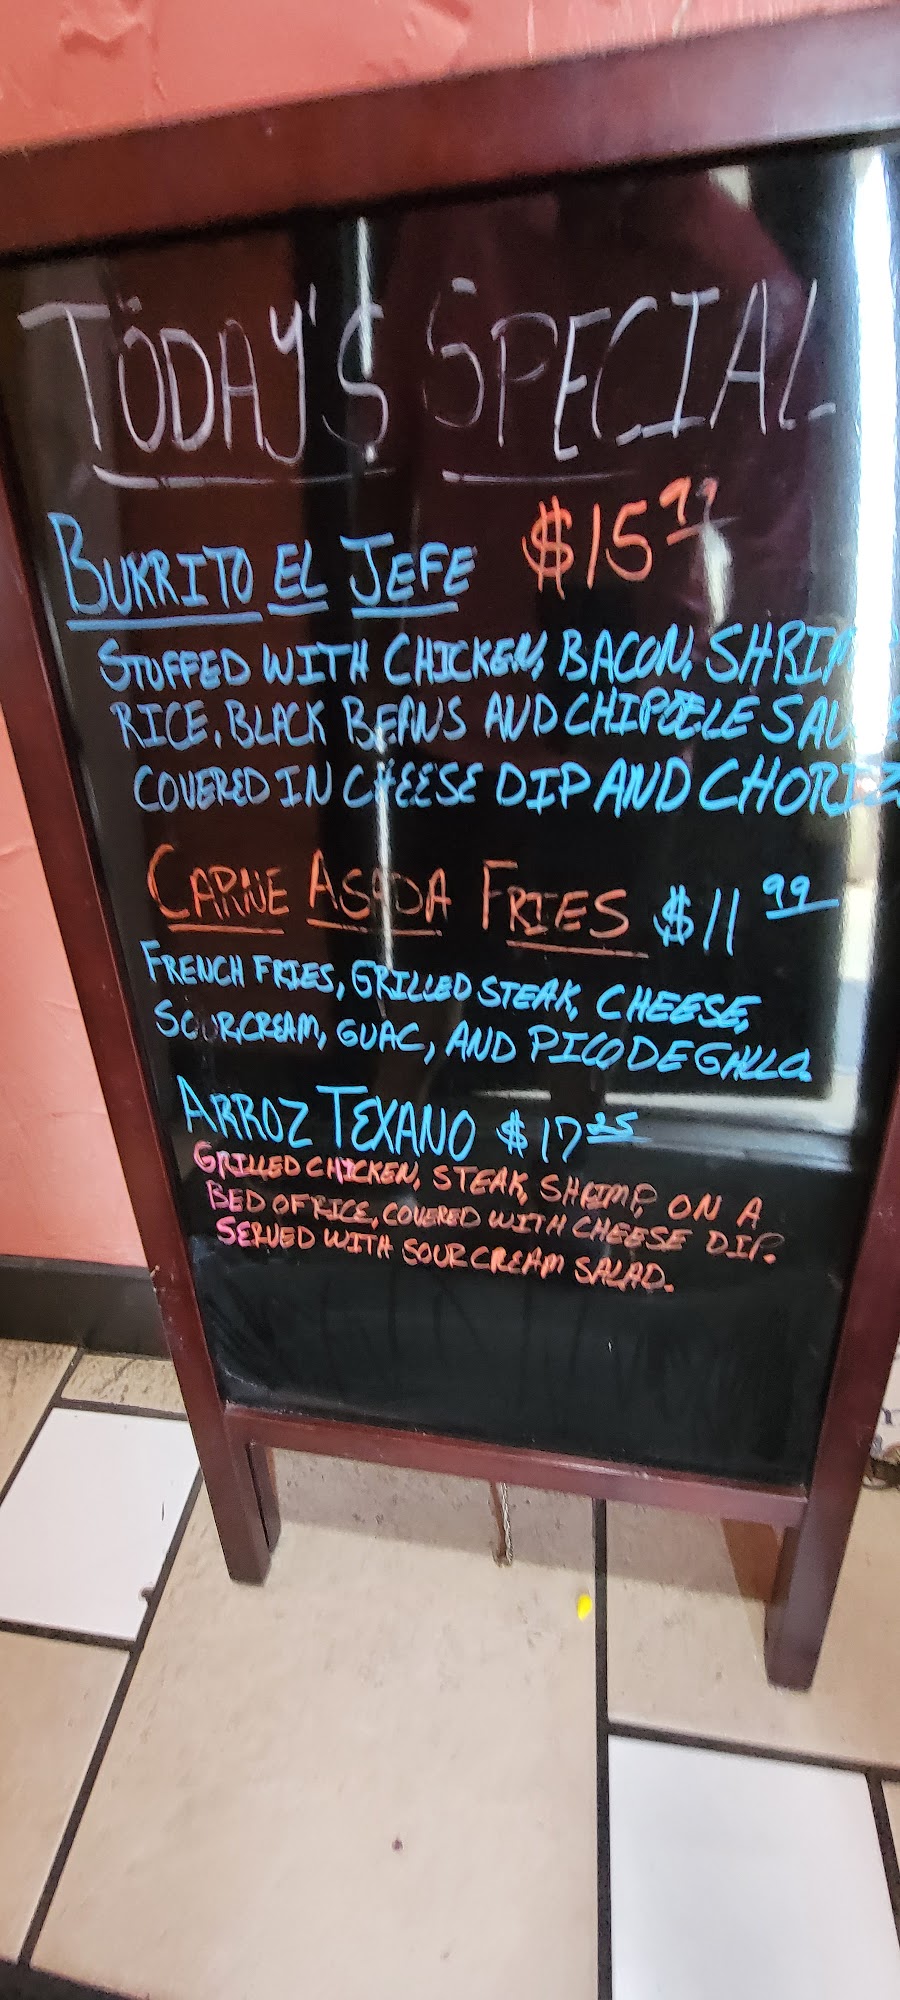 TODAY'S SPECIAL
BURRITO EL JEFE $15.99
STUFFED WITH CHICKEN, BACON, SHRIM
RICE, BLACK BEANS AND CHIPOELE SAU
COVERED IN CHEESE DIP AND CHORIZ
CARNE ASADA FRIES $11.99
FRENCH FRIES, GRILLED STEAK, CHEESE,
SOURCREAM, GUAC, AND PICO DE GALLO.
ARROZ TEXANO $17.25
GRILLED CHICKEN, STEAK, SHRIMP, ON A
BED OF RICE, COVERED WITH CHEESE DIP.
SERVED WITH SOUR CREAM SALAD.